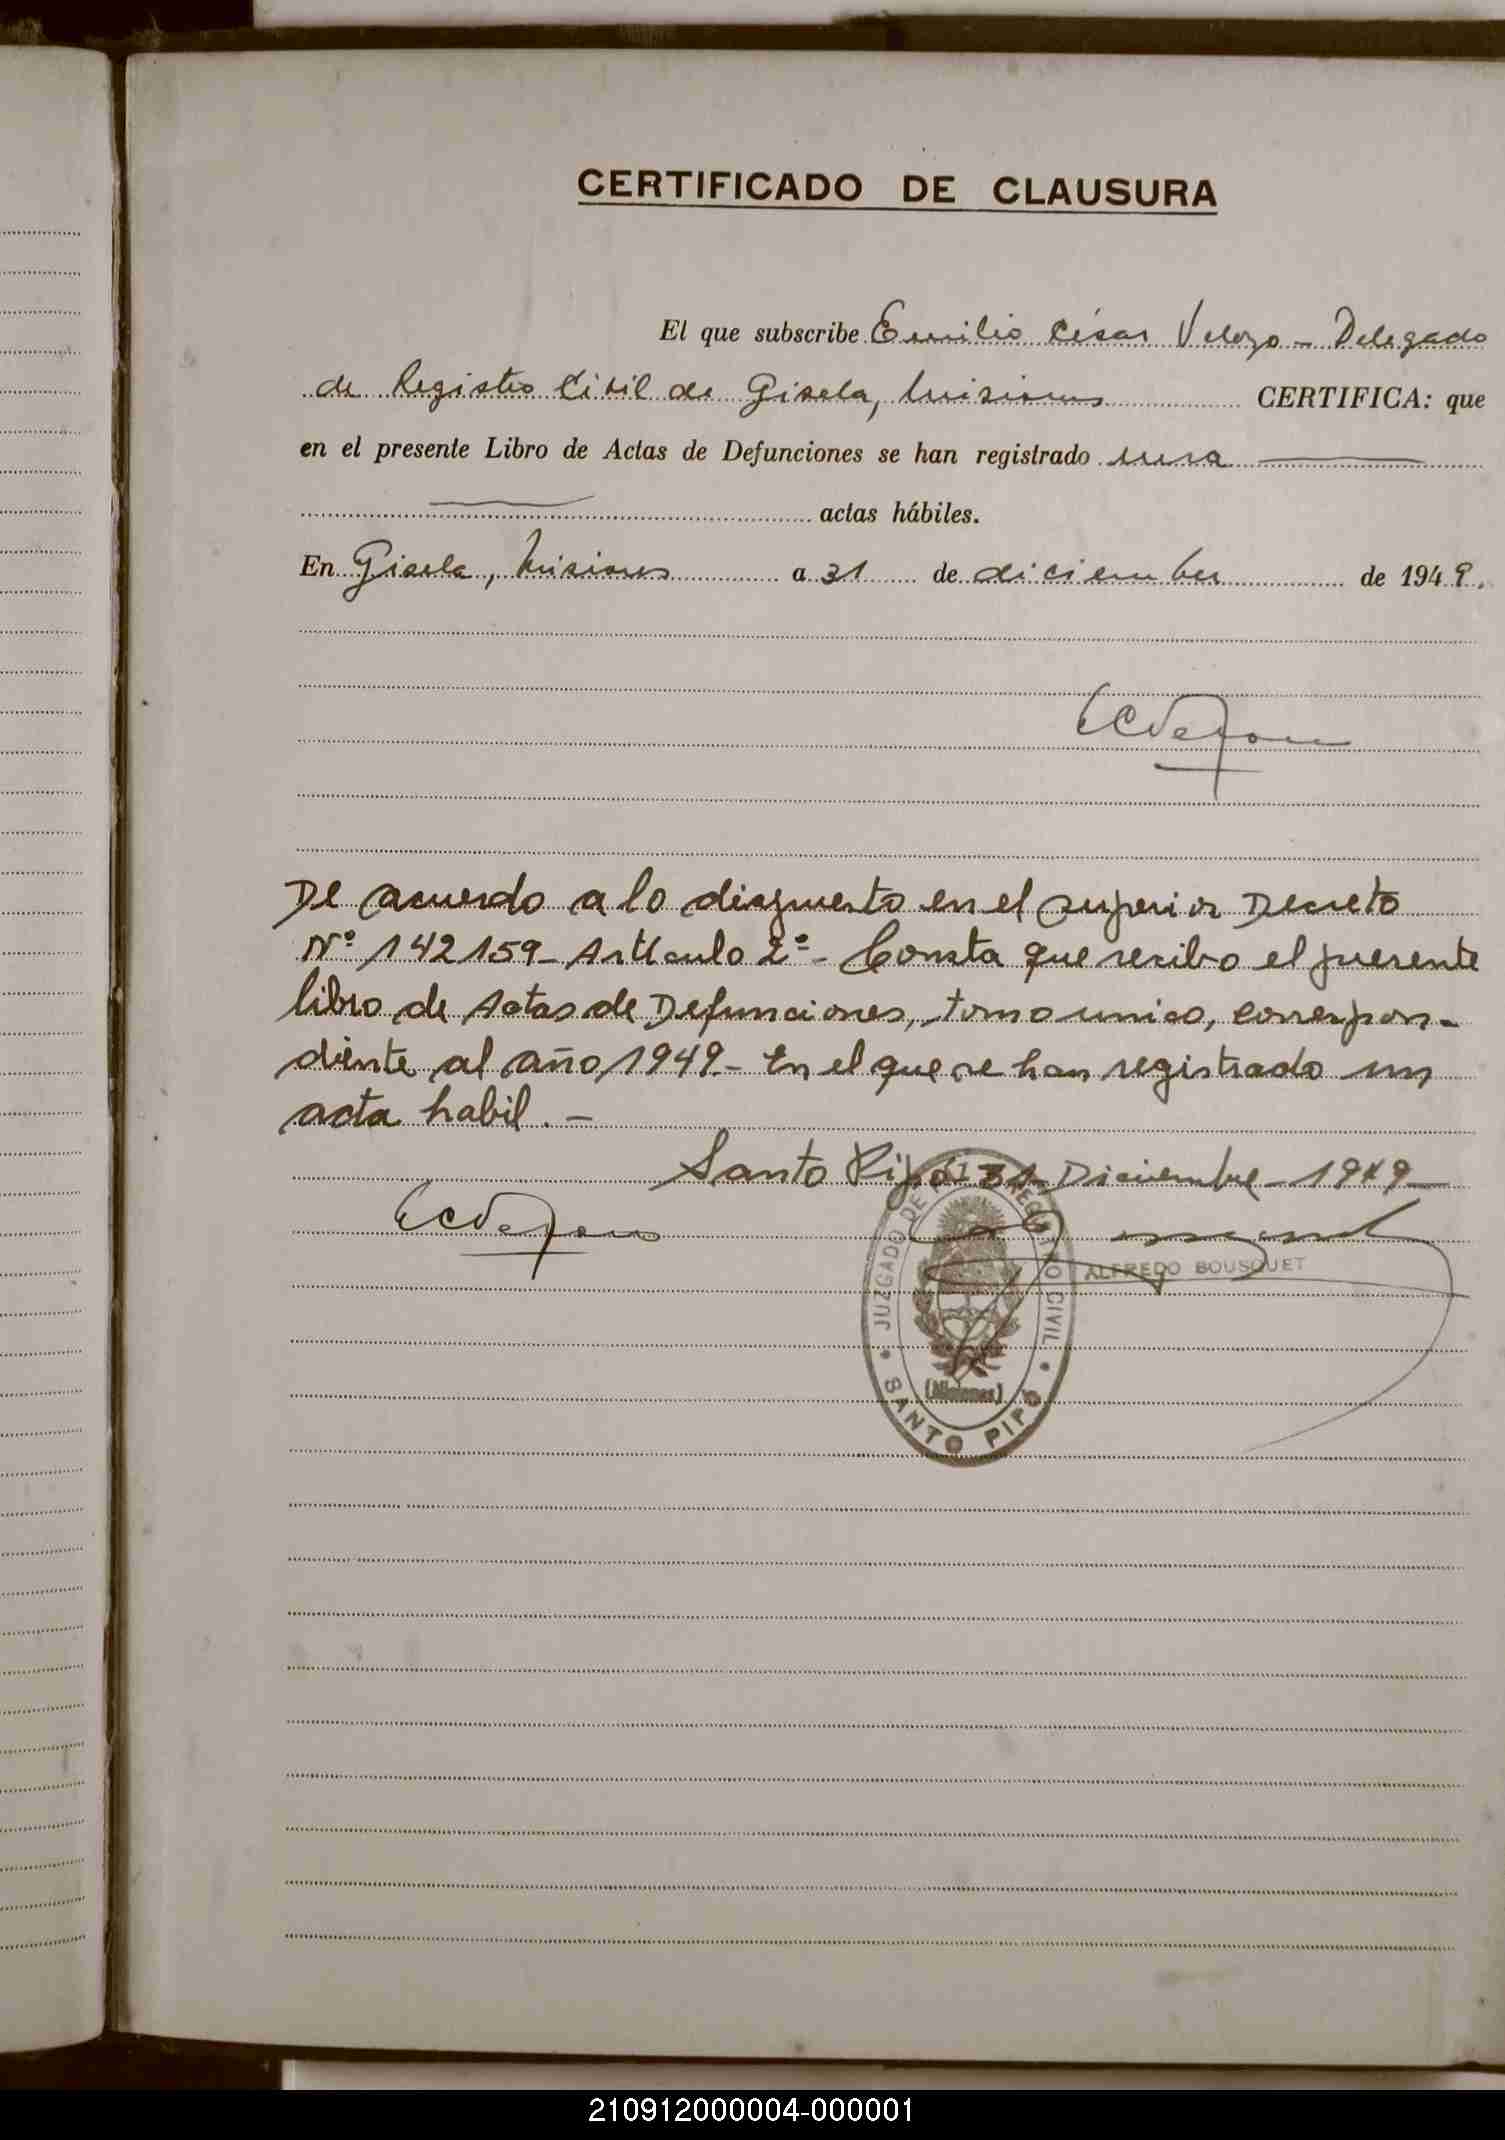 CERTIFICADO DE CLAUSURA
El que subscribe Emilio César Velozo - Delegado
de Registro Civil de Gisela, Misiones CERTIFICA: que
en el presente Libro de Actas de Defunciones se han registrado una
actas hábiles.
En Gisela, Misiones a 31 de diciembre de 1949.
De acuerdo a lo dispuesto en el superior Decreto
Nº 142159 - Artículo 2º - Consta que recibo el presente
libro de Actas de Defunciones, tomo unico, correspon-
diente al año 1949 - En el que se han registrado un
acta habil. -
Santo Pipó 31 Diciembre - 1949 -
ALFREDO BOUSQUET
JUZGADO DE PAZ Y REGISTRO CIVIL
(Misiones)
SANTO PIPÓ
210912000004-000001